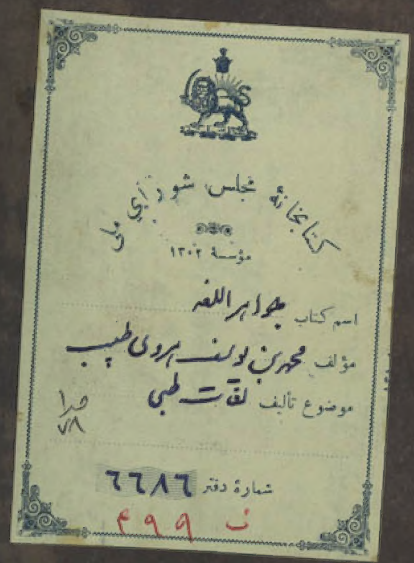 کتابخانهٔ مجلس شورای ملی
مؤسسهٔ ۱۳۰۲
اسم کتاب جواهر اللغه
مؤلف محمد بن یوسف الهروی طبیب
موضوع تألیف لغات طبی
۷۸
شمارهٔ دفتر ٦٦٨٦
ف ۴۹۹